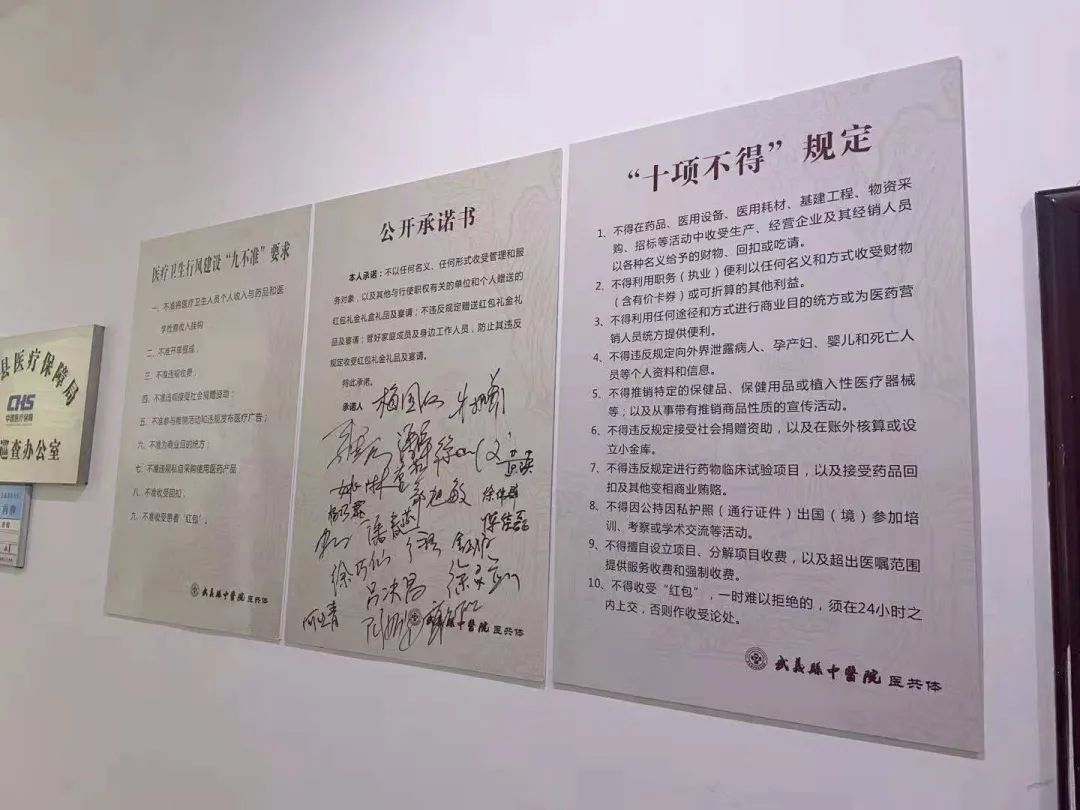 县医疗保障局
CHS
中国医疗保障
巡查办公室
医疗卫生行风建设“九不准”要求
一、不准将医疗卫生人员个人收入与药品和医
学检查收入挂钩；
二、不准开单提成；
三、不准违规收费；
四、不准违规接受社会捐赠资助；
五、不准参与推销活动和违规发布医疗广告；
六、不准为商业目的统方；
七、不准违规私自采购使用医药产品
八、不准收受回扣；
九、不准收受患者“红包”。
武義縣中醫院 医共体
公开承诺书
本人承诺：不以任何名义、任何形式收受管理和服
务对象，以及其他与行使职权有关的单位和个人赠送的
红包礼金礼盒礼品及宴请；不违反规定赠送红包礼金礼
品及宴请；管好家庭成员及身边工作人员，防止其违反
规定收受红包礼金礼品及宴请。
特此承诺。
承诺人
徐巧仙
武義縣中醫院 医共体
“十项不得”规定
1、不得在药品、医用设备、医用耗材、基建工程、物资采
购、招标等活动中收受生产、经营企业及其经销人员
以各种名义给予的财物、回扣或吃请。
2、不得利用职务（执业）便利以任何名义和方式收受财物
（含有价卡券）或可折算的其他利益。
3、不得利用任何途径和方式进行商业目的统方或为医药营
销人员统方提供便利。
4、不得违反规定向外界泄露病人、孕产妇、婴儿和死亡人
员等个人资料和信息。
5、不得推销特定的保健品、保健用品或植入性医疗器械
等；以及从事带有推销商品性质的宣传活动。
6、不得违反规定接受社会捐赠资助，以及在账外核算或设
立小金库。
7、不得违反规定进行药物临床试验项目，以及接受药品回
扣及其他变相商业贿赂。
8、不得因公持因私护照（通行证件）出国（境）参加培
训、考察或学术交流等活动。
9、不得擅自设立项目、分解项目收费，以及超出医嘱范围
提供服务收费和强制收费。
10、不得收受“红包”，一时难以拒绝的，须在24小时之
内上交，否则作收受论处。
武義縣中醫院 医共体